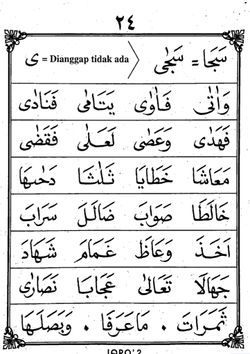 ٢٤
سَجَا = سَجٰى
ى = Dianggap tidak ada
وَاٰتٰى فَاَوٰى يَتَامٰى فَنَادٰى
فَهَدٰى وَعَصٰى لَعَلٰى فَقَضٰى
مَعَاشًا خَطَايَا ثَلٰثًا دَحٰىهَا
خَالَطَا صَوَابَ ضَالَلَ سَرَابَ
اَخَذَ وَعَاظَ غَمَامَ شَهَادَ
جَهَالَا تَعَالٰى عَجَابَا نَصَارٰى
ثَمَرَاتَ . مَاعَرَفَا . وَبَصَلَهَا